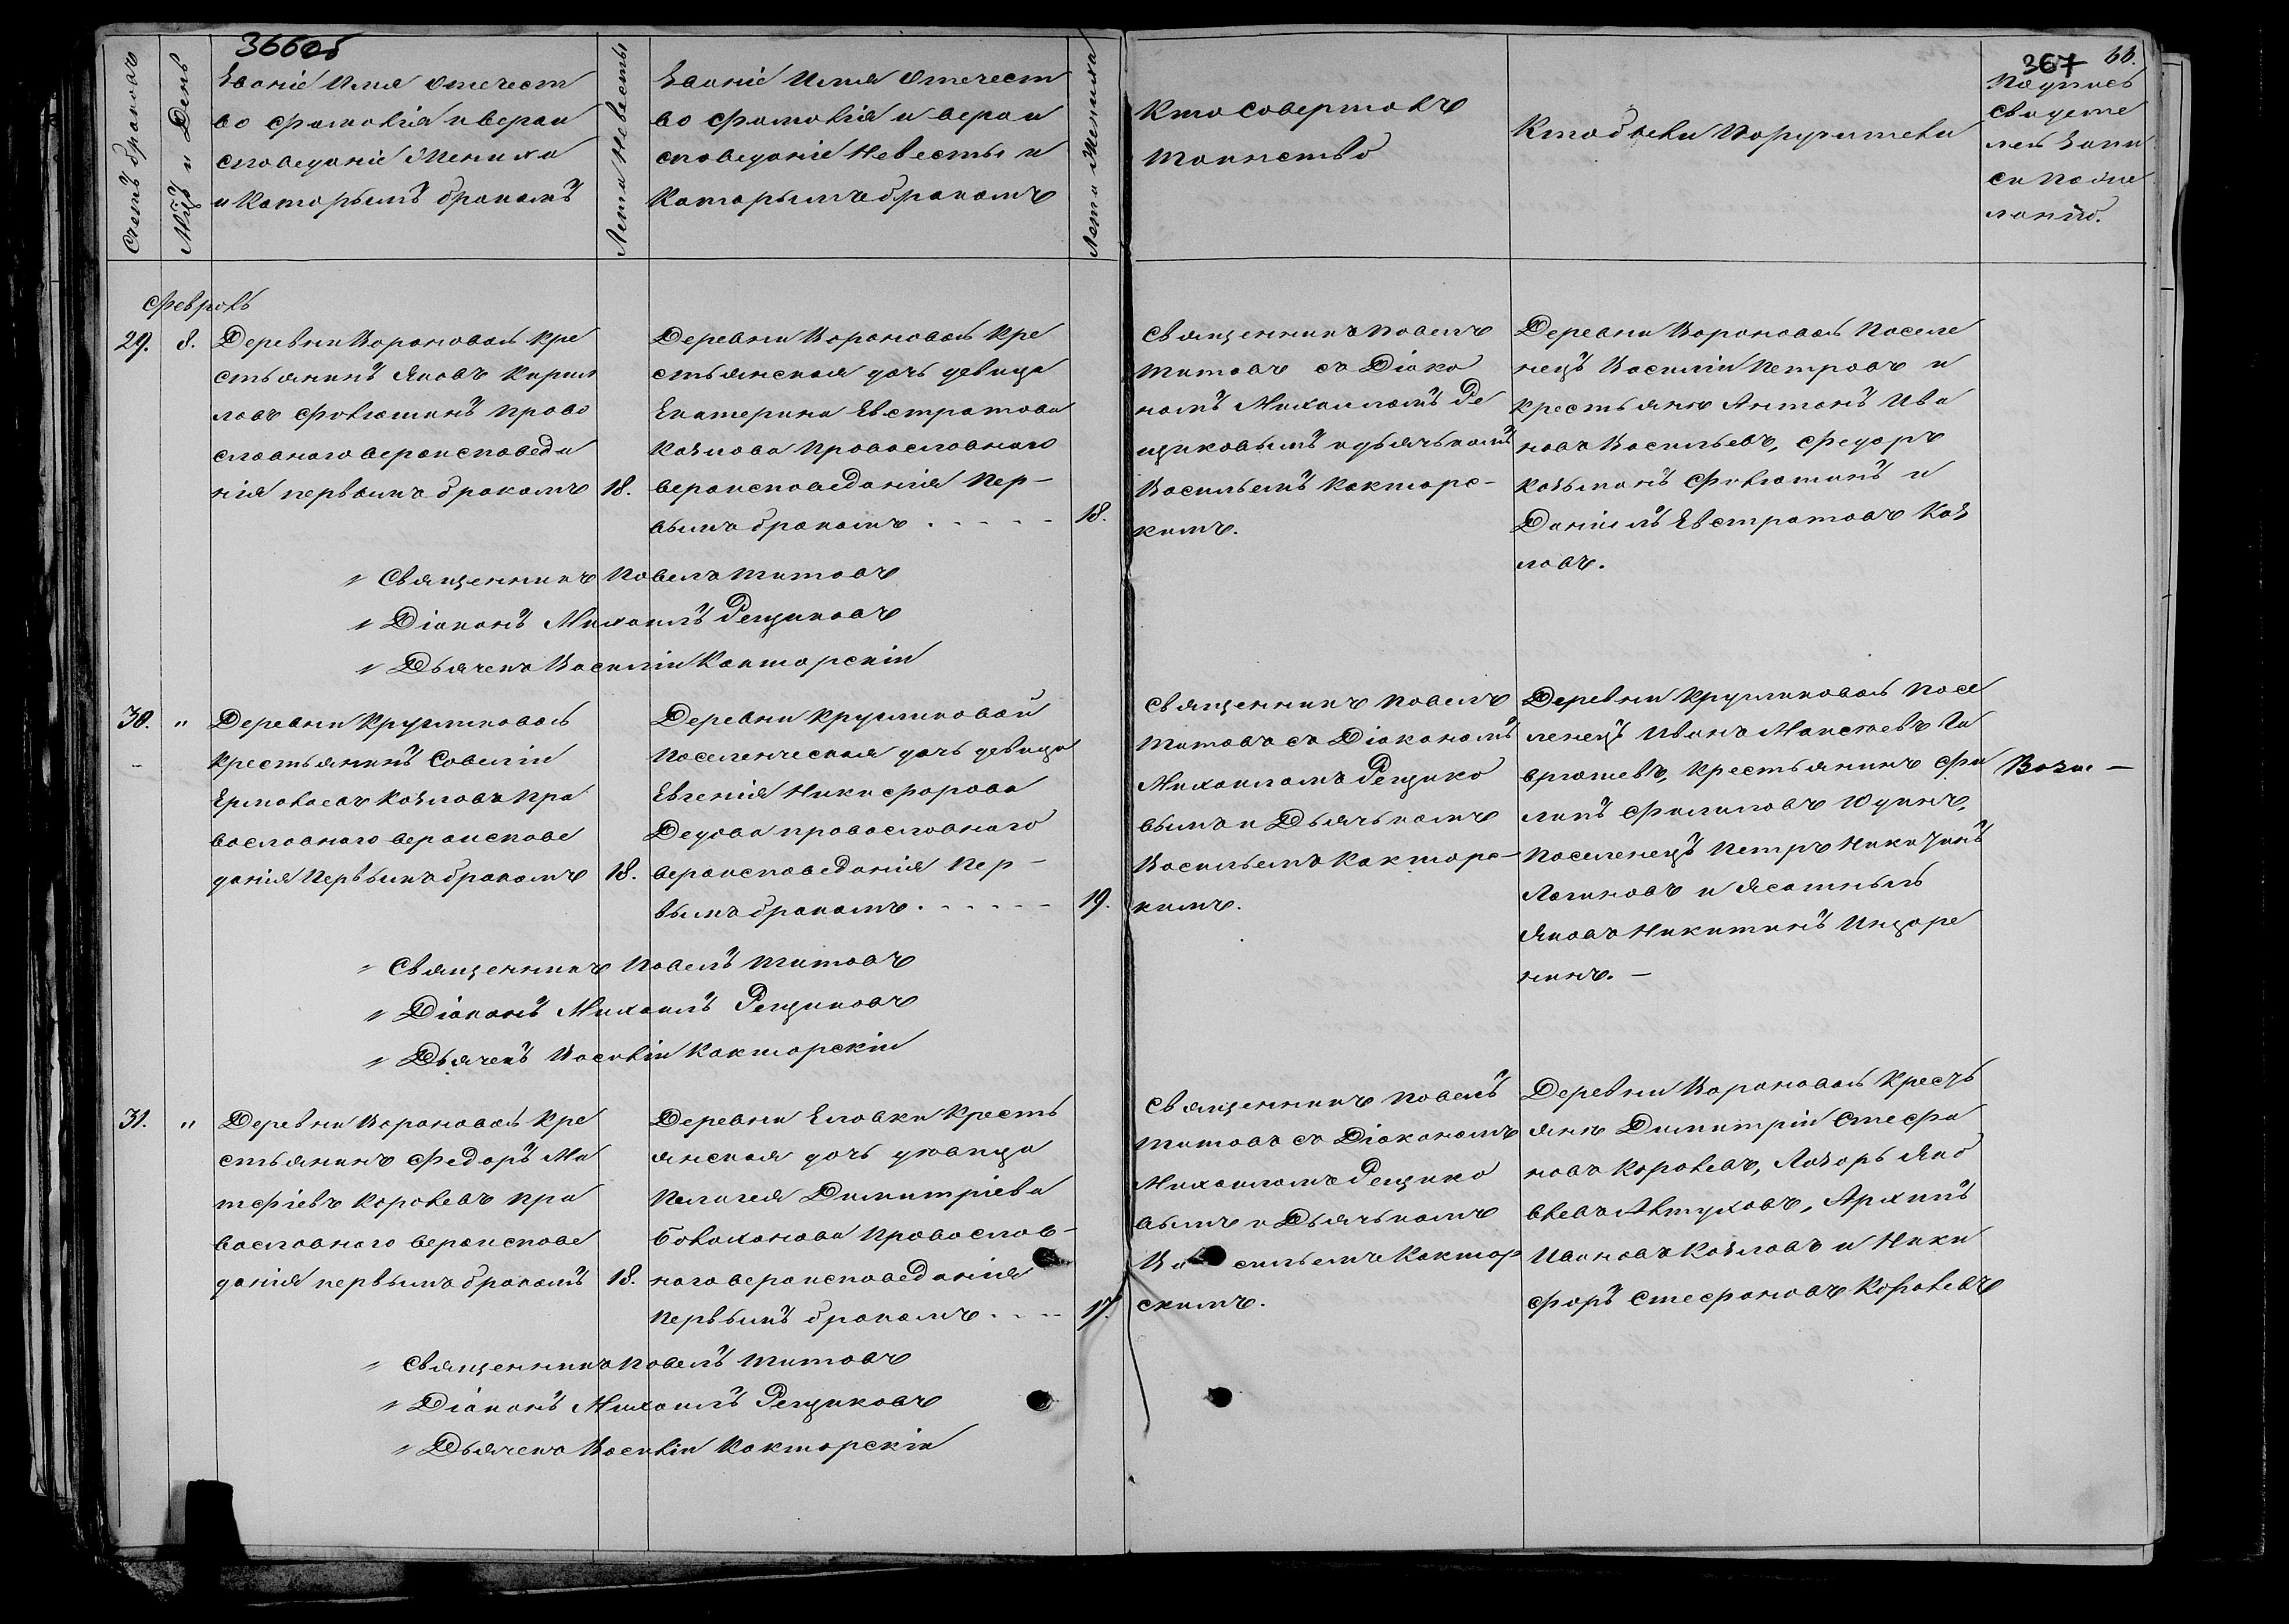 366об
367
66.
Счетъ браковъ
Мцъ и День
Званіе Имя Отечест
во Фамилія и верои
споведаніе Жениха
и Которымъ бракомъ
Лета Невесты
Званіе Имя Отечест
во Фамилія и верои
споведаніе Невесты и
Которымъ бракомъ
Лета Жениха
Кто Совершалъ
Таинство
Кто были Поручители
Подпись
свидете
лей Запи
си по же
ланію.
Февраль
29.
8.
Деревни Вороновой Кре
стьянинъ Яковъ Кирил
ловъ Филюшинъ Право
славнаго вероисповеда
нія первымъ бракомъ
18.
Деревни Вороновой Кре
стьянская дочь девица
Екатерина Евстратова
Козлова Православнаго
вероисповеданія Пер-
вымъ бракомъ
18.
Священникъ Павелъ
Титовъ съ Діако
номъ Михаиломъ Ре
щиковымъ и дьячькомъ
Васильемъ Кокшарс-
кимъ.
Деревни Вороновой Поселе
нецъ Василіи Петровъ и
крестьяне Антонъ Ива
новъ Васильевъ, Федоръ
Козьминъ Филюшинъ и
Даніилъ Евстратовъ Коз
ловъ.
Священникъ Павелъ Титовъ
Діаконъ Михаилъ Рещиковъ
Дьячекъ Василіи Кокшарскіи
30.
"
Деревни Кругликовой
крестьянинъ Савеліи
Ермолаевъ Козловъ Пра
вославнаго вероиспове
данія Первымъ бракомъ
18.
Деревни Кругликовой
Поселенческая дочь девица
Евгенія Никифорова
Дедова православнаго
вероисповеданія Пер-
вымъ бракомъ
19.
Священникъ Павелъ
Титовъ съ Діакономъ
Михаиломъ Рещико
вымъ и Дьячькомъ
Васильемъ Кокшарс-
кимъ.
Деревни Кругликовой Посе
ленецъ Иванъ Моисеевъ Га
врюшевъ, Крестьянинъ Фи
липъ Филиповъ Юдинъ,
Поселенецъ Петръ Никитинъ
Логиновъ и Ясашныи
Яковъ Никитинъ Ищоре
нинъ. -
Священникъ Павелъ Титовъ
Діаконъ Михаилъ Рещиковъ
Дьячекъ Василіи Кокшарскіи
31.
"
Деревни Вороновой Кре
стьянинъ Федоръ Ма
тфіевъ Королевъ Пра
вославнаго вероиспове
данія первымъ бракомъ
18.
Деревни Еловки Кресть
янская дочь девица
Пелагея Димитріева
Православ-
наго вероисповеданія
Первымъ бракомъ
17.
Священникъ Павелъ
Титовъ съ Діакономъ
Михаиломъ Рещико
вымъ и Дьячькомъ
Васильемъ Кокшар
скимъ.
Деревни Вороновой Кресть
яне Димитріи Стефа
новъ Королевъ, Лазорь Яко
влевъ Алтуховъ, Архипъ
Ивановъ Козловъ и Ники
форъ Стефановъ Королевъ
Священникъ Павелъ Титовъ
Діаконъ Михаилъ Рещиковъ
Дьячекъ Василіи Кокшарскіи